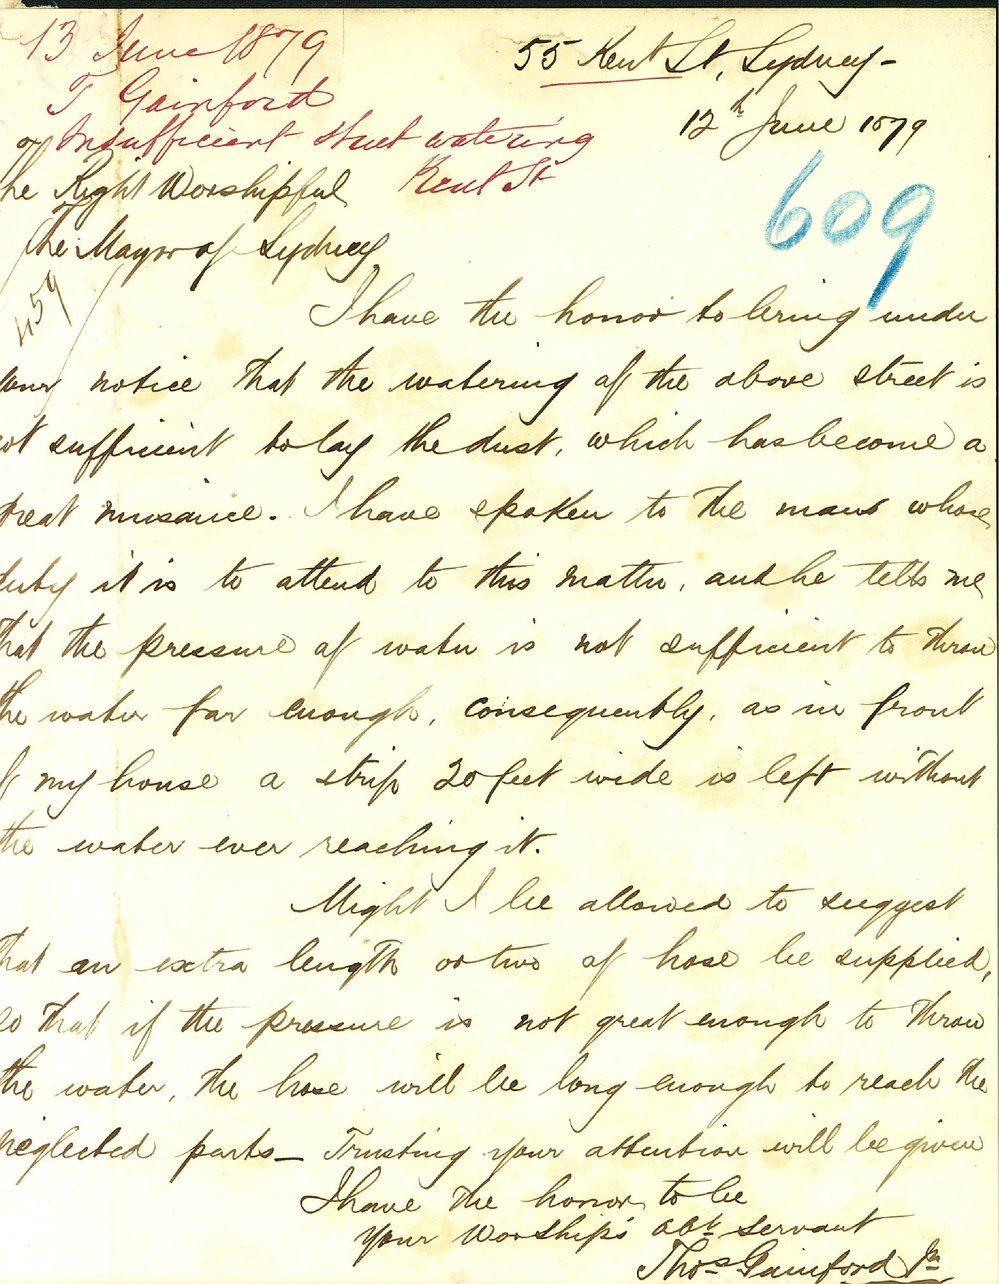 13 June 1879
T Gainford
Insufficient street watering
Kent St
55 Kent St, Sydney-
12th June 1879
609
The Right Worshipful
The Mayor of Sydney
459
I have the honor to bring under
your notice that the watering of the above street is
not sufficient to lay the dust, which has become a
great nuisance. I have spoken to the man whose
duty it is to attend to this matter, and he tells me
that the pressure of water is not sufficient to throw
the water far enough, consequently, as in front
of my house a strip 20 feet wide is left without
the water ever reaching it.
Might I be allowed to suggest
that an extra length or two of hose be supplied,
so that if the pressure is not great enough to throw
the water, the hose will be long enough to reach the
neglected parts_ Trusting your attention will be given
I have the honor to be
Your Worship's obt servant
Thos Gainford Jn